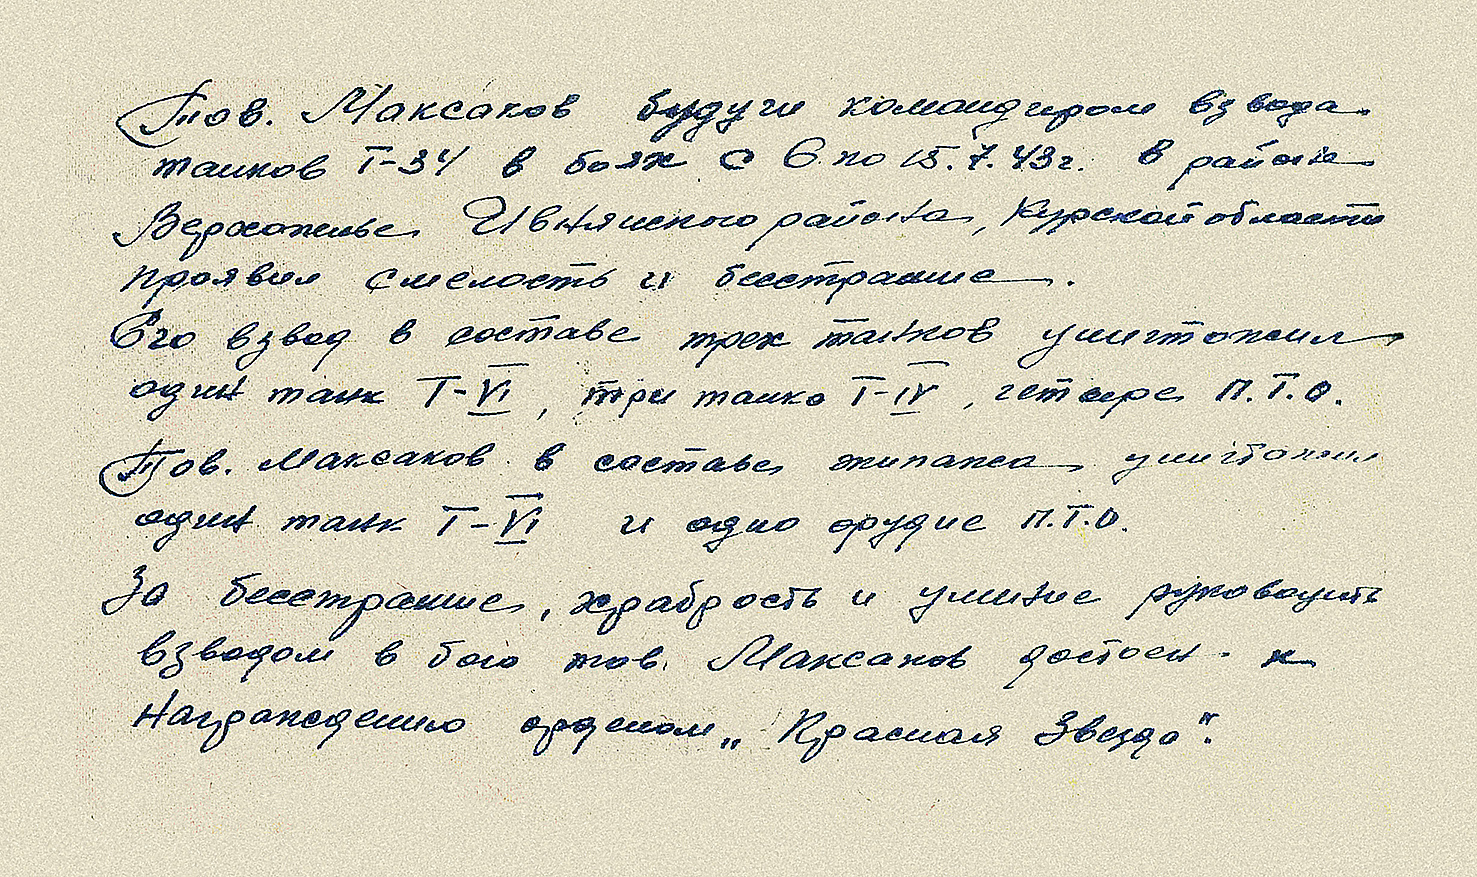 Тов. Максаков будучи командиром взвода
танков Т-34 в боях с 6 по 15.7.43г. в районе
Верхопенье Ивнянского района, Курской области
проявил смелость и бесстрашие.
Его взвод в составе трех танков уничтожил
один танк Т-VI, три танка Т-IV, четыре П.Т.О.
Тов. Максаков в составе экипажа уничтожил
один танк Т-VI и одно орудие П.Т.О.
За бесстрашие, храбрость и умение руководить
взводом в бою тов. Максаков достоен к
Награждению орденом „Красная Звезда".